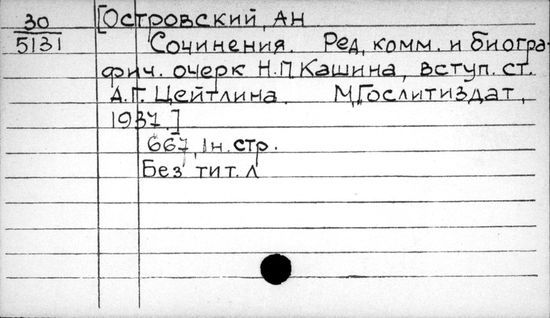 30
5131
[Островский, АН
Сочинения. Ред, комм. и биогра-
фич. очерк Н.П.Кашина, вступ. ст.
А.Г. Цейтлина. М,Гослитиздат,
1937.]
667, 1н. стр.
Без тит. л